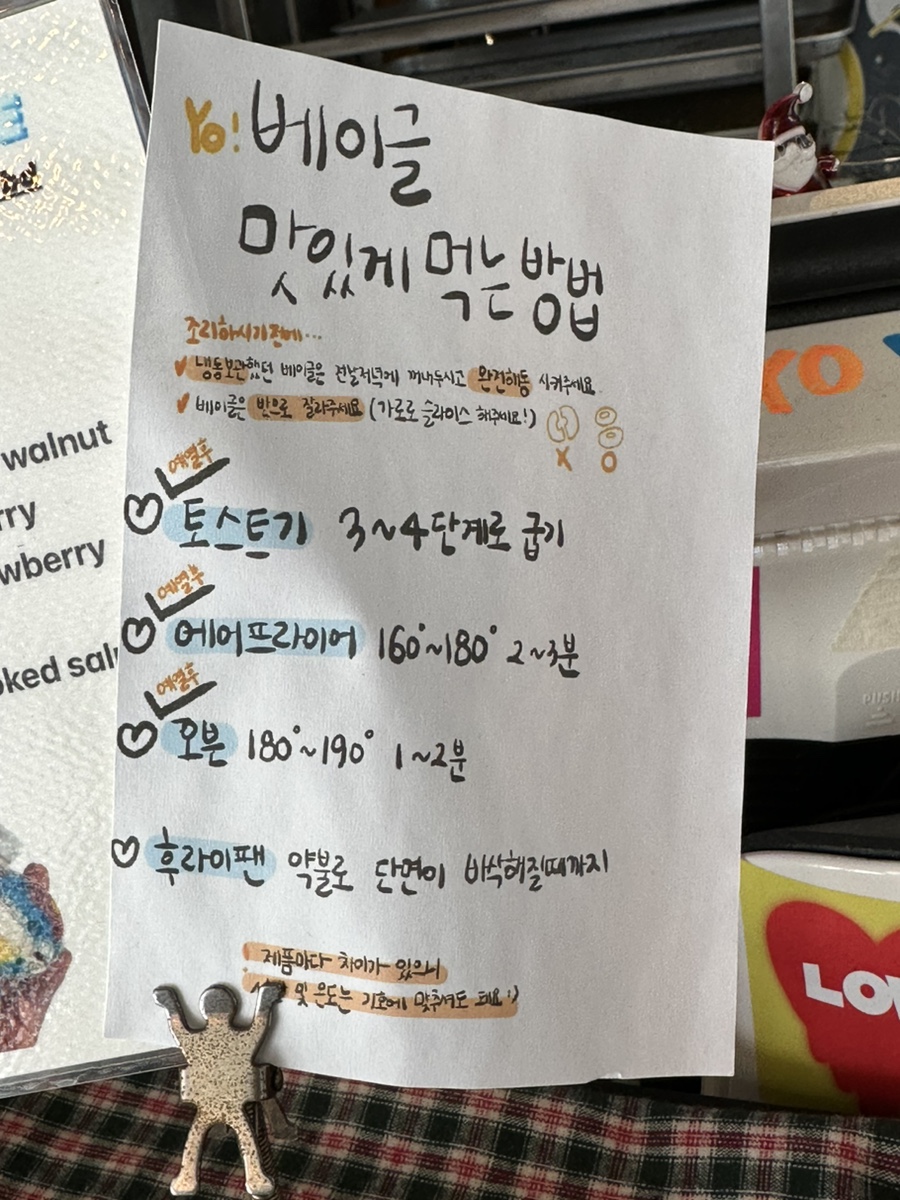 Yo! 베이글
맛있게 먹는 방법
조리하시기전에...
냉동보관했던 베이글은 전날저녁에 꺼내두시고 완전해동 시켜주세요
베이글은 반으로 잘라주세요 (가로로 슬라이스 해주세요!)
X O
예열후
토스트기 3~4단계로 굽기
예열후
에어프라이어 160°~180° 2~3분
예열후
오븐 180°~190° 1~2분
후라이팬 약불로 단면이 바삭해질때까지
제품마다 차이가 있으니
및 온도는 기호에 맞춰서도 돼요:)
walnut
oked
LO